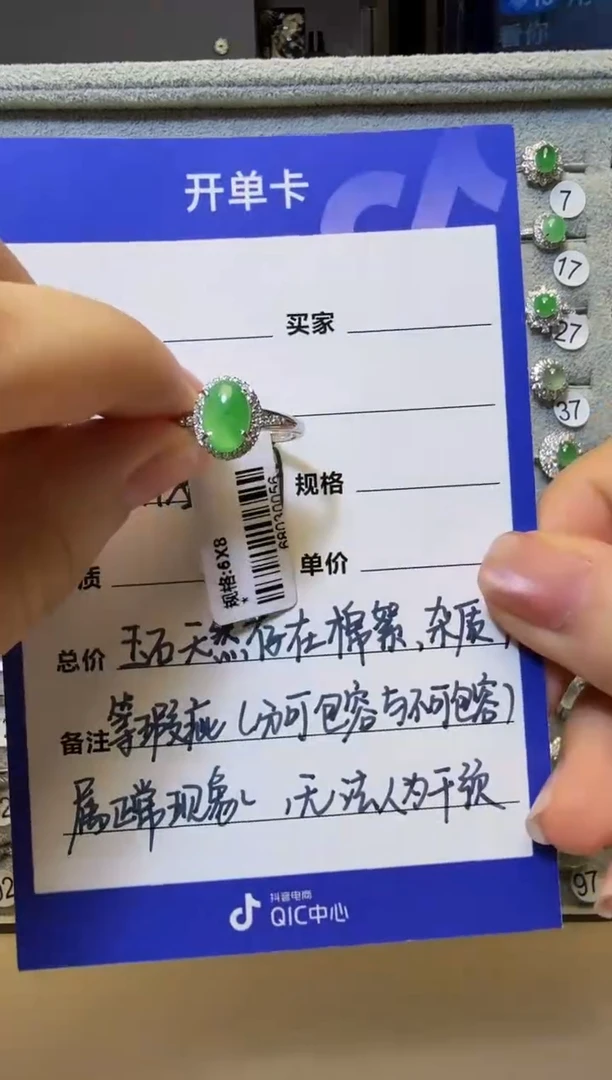 看你
开单卡
7
买家
17
27
37
规格
规格:6X8
质
单价
总价 玉石天然存在棉絮、杂质,
备注 等瑕疵(分可包容与不可包容)
属正常现象,无法人为干预
97
抖音电商
QIC中心